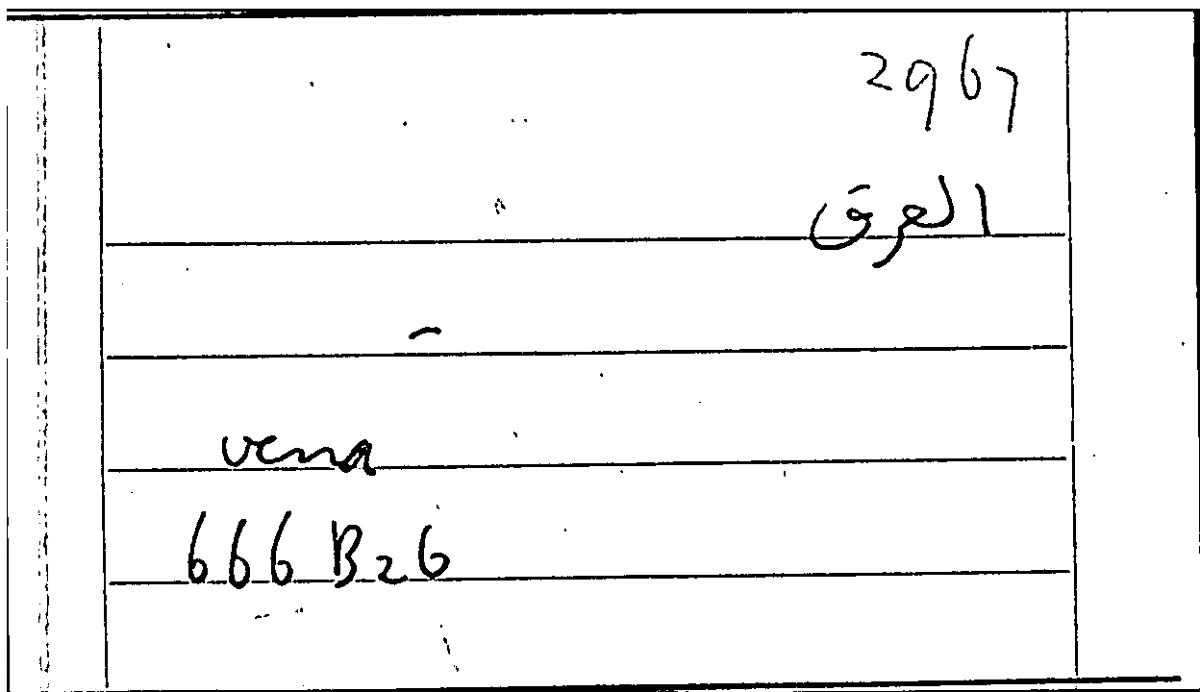 2967
العرق
vena
666 B26